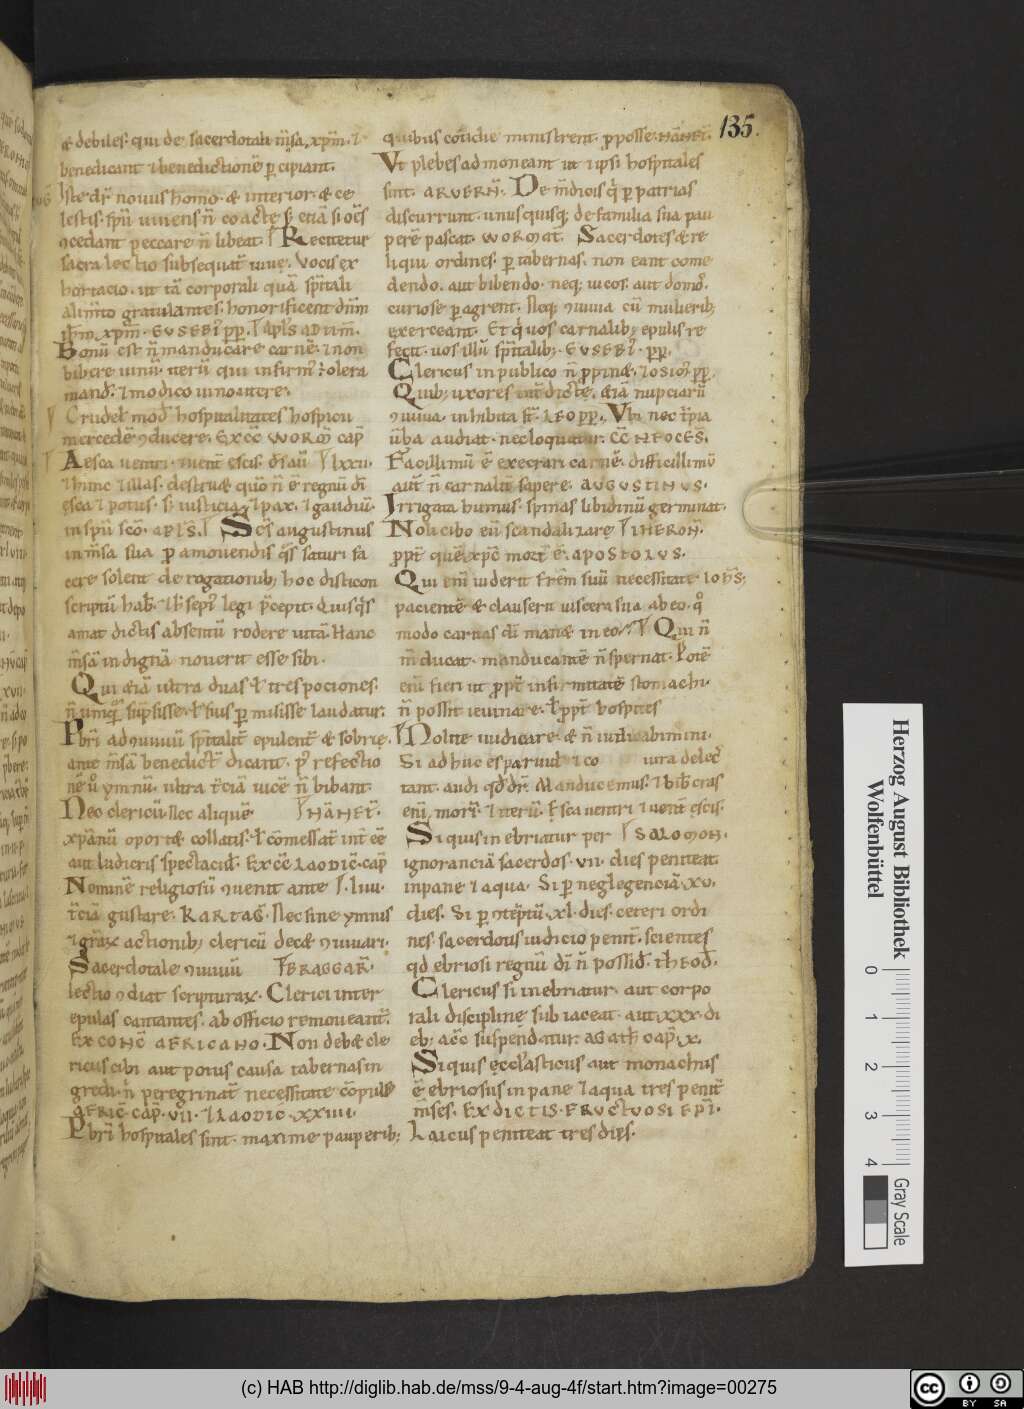 135.
& debiles. qui de sacerdotali m̄sa. xp̄m. ⁊
benedicant ⁊ benedictionē p̄cipiant.
Iste dr̄ nouus homo. & interior. & ce
lestis. sp̄u uiuens n̄ coacte. s; etiā si oc̄s
ꝯcedant peccare n̄ libeat. Recitetur
sacra lectio subsequat᷑ uiuę. Vocis ex
hortacio. ut tā corporali quā sp̄itali
alim̄to gratulantes. honorificent dn̄m
ih̄m xp̄m. EVSEBI PP.
Bonū est n̄ manducare carnē. ⁊ non
bibere uinū. iterū qui infirm᷒ ē olera
mand. ⁊ modico uino utere.
Crudel᷒ mod hospitalitates hospicii
mercedē ꝯducere. EX CC̄ WORM̄ CAP̄
Aesca uentri. ⁊ uent̄ escis. ds̄ aū lxxii.
⁊ hunc ⁊ illas. destru& quō n̄ ē regnū dī
ęsca ⁊ potus. s; iusticia ⁊ pax. ⁊ gaudiū.
in sp̄u sc̄o. APL̄S. Sc̄s augustinus
in m̄sa sua p̄ amouendis q̄s saturi fa
cere solent derogationib; hoc disticon
scriptū hab. ⁊ sep̄i legi p̄cepit. Quisq̄s
amat dictis absentū rodere uitā. Hanc
m̄sā indignā nouerit esse sibi.
Qui &iā ultra duas ł tres pociones.
n̄ umquā sūpsisse. ł suis p̄misisse laudatur.
Pbr̄i ad ꝯuiuiū sp̄italit᷑ epulent᷑ & sobrię.
ante m̄sā benedict᷑ dicant. p᷒ refectio
nē u᷒ ymnū. ultra t̄ciā uicē n̄ bibant.
Neo clericū. Nec aliquē NĀNET̄.
xp̄ianū oport& collatis. ł comessat᷑ int̄ eē
aut ludicris spectacul. EX CC̄ LAODIC̄. CAP̄
Neminē religiosū ꝯuenit ante liiii.
t̄ciā gustare. KARTAG̅. Nec sine ymnus
⁊ grāꝝ actionib; clericū dec& ꝯuiuari.
Sacerdotale ꝯuiuiū BRAGGAR̄.
lectio ꝯdiat scripturaꝝ. Clerici inter
epulas cantantes. ab officio remoueant᷑.
EX CONC̄ AFRICANO. Non deb& cle
ricus cibi aut potus causa tabernas in
gredi. n̄ peregrinat᷑ necessitate cōpuls᷒
AFRIC̄ CAP̄. VII. ⁊ LAODIC. XXIIII.
Pbr̄i hospitales sint. maxime pauperib;
quibus cotidie ministrent. p̄ posse. NĀNET̄.
Vt plebes admoneant ut ⁊ ipsi hospitales
sint. ARVERN̄. De m̄dicis q̄ p̄ patrias
discurrunt. unusquisq; de familia sua pau
perē pascat. WORMAT̄. Sacerdotes & re
liqui ordines. p̄ tabernas. non eant come
dendo. aut bibendo. neq; uicos. aut domos
curiose p̄agrent. Neq; ꝯuiuia cū mulierib;
exerceant. Et quos carnalib; epulis re
fecit. uos illū sp̄italib;. EVSEBI᷒. PP.
Clericus in publico n̄ p̄pin&. ZOSIM᷒. PP.
Quib; uxores int̄dictę. &iā nuptiarū
ꝯuiuia inhibita st̄. LEO PP. Vbi nec t̄pia
ūba audiat. nec loquatur. CC̄ NEOCES.
Facillimū ē execrari carnē. difficillimū
aut̄ n̄ carnalit᷑ sapere. AVGVSTINUS.
Irrigata humus. spinas libidinū germinat.
Noli cibo eū scandalizare IHERON̄.
p̄pt᷑ quē xp̄c mort᷒ ē. APOSTOLVS.
Qui enī uiderit frēm suū necessitatē IOH̄S;
pacientē & clauserit uiscera sua ab eo. q̄
modo caritas dī man& in eo. Qui n̄
m̄ducat. manducantē n̄ spernat. Potē
enī fieri ut p̄pt᷑ infirmitatē stomachi.
n̄ possit ieiunare. ł p̄pt᷑ hospites
Nolite iudicare. & n̄ iudicabimini.
Si adhuc es paruul᷒ ⁊ co uita delec
tant. audi qd dr̄. Manducemus. ⁊ bib̄ cras
enī morī. ⁊ iterū. ęsca uentri ⁊ uent̄ escis.
Siquis inebriatur per SALOMON.
ignorantiā sacerdos. VII. dies peniteat
in pane ⁊ aqua. Si p̄ neglegenciā. XV.
dies. Si p̄ ꝯtēptū. XL. dies. ceteri ordi
nes. sacerdotis iudicio penit̄. scientes
qd ebriosi regnū dī n̄ possid. THEOD̄.
Clericus si inebriatur. aut corpo
rali discipline subiaceat. aut XXX. di
eb; a cc̄ suspendatur. AGATH̄ CAP̄ IX.
Siquis ęcclasticus aut monachus
ē ebriosus in pane ⁊ aqua tres penit̄
m̄ses. EX DICTIS. FRVCTVOSI EP̄I.
Laicus peniteat tres dies.
Herzog August Bibliothek
Wolfenbüttel
0 1 2 3 4
Gray Scale
(c) HAB http://diglib.hab.de/mss/9-4-aug-4f/start.htm?image=00275
cc BY SA